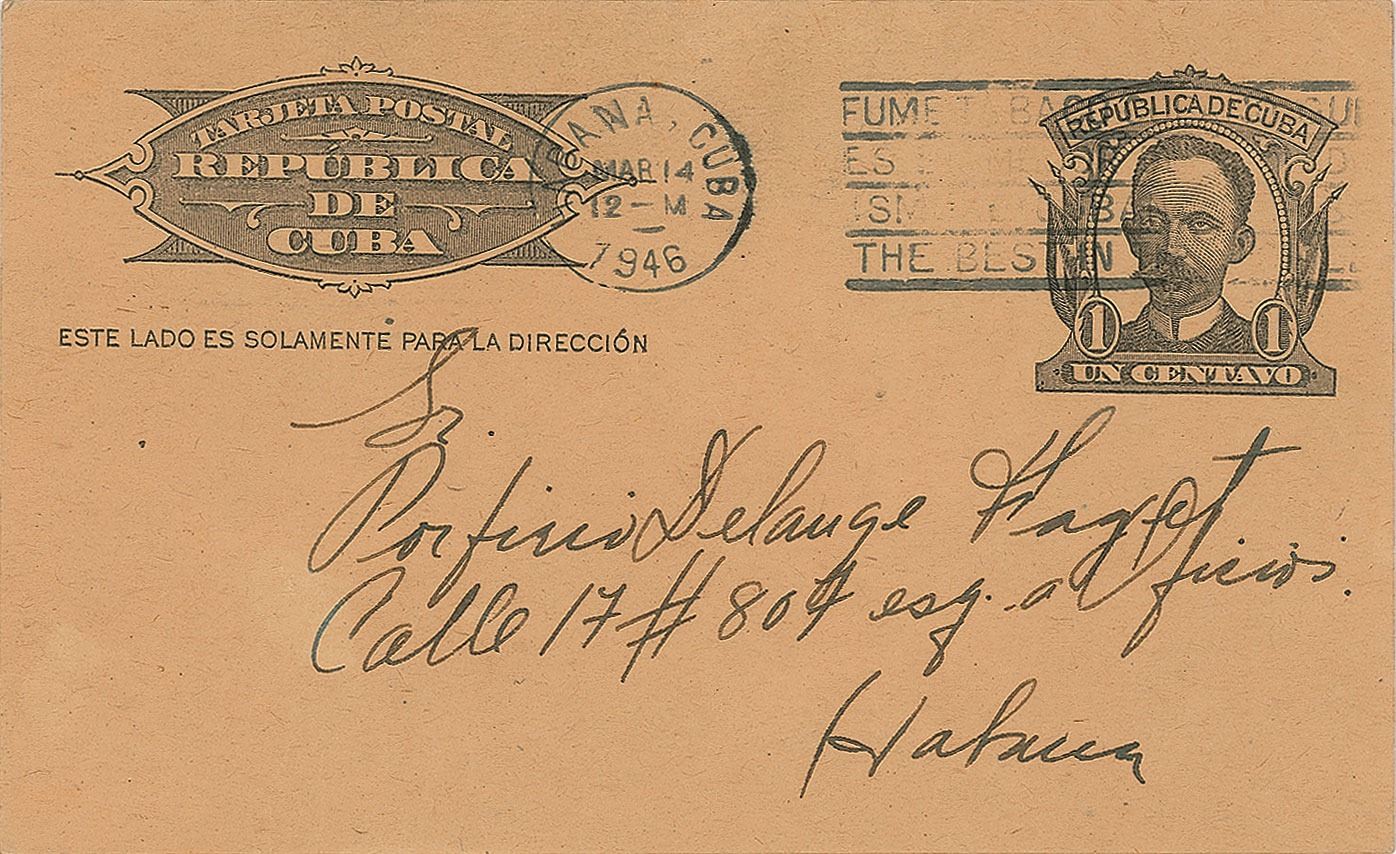 TARJETA POSTAL
REPÚBLICA
DE
CUBA
ANA, CUBA
MAR 14
12 - M
1946
FUME TABAC
ES
ISM
THE BEST IN
REPÚBLICA DE CUBA
1 1
UN CENTAVO
ESTE LADO ES SOLAMENTE PARA LA DIRECCIÓN
Sr.
Porfirio Delange
Calle 17 # 804 esq. a
Habana